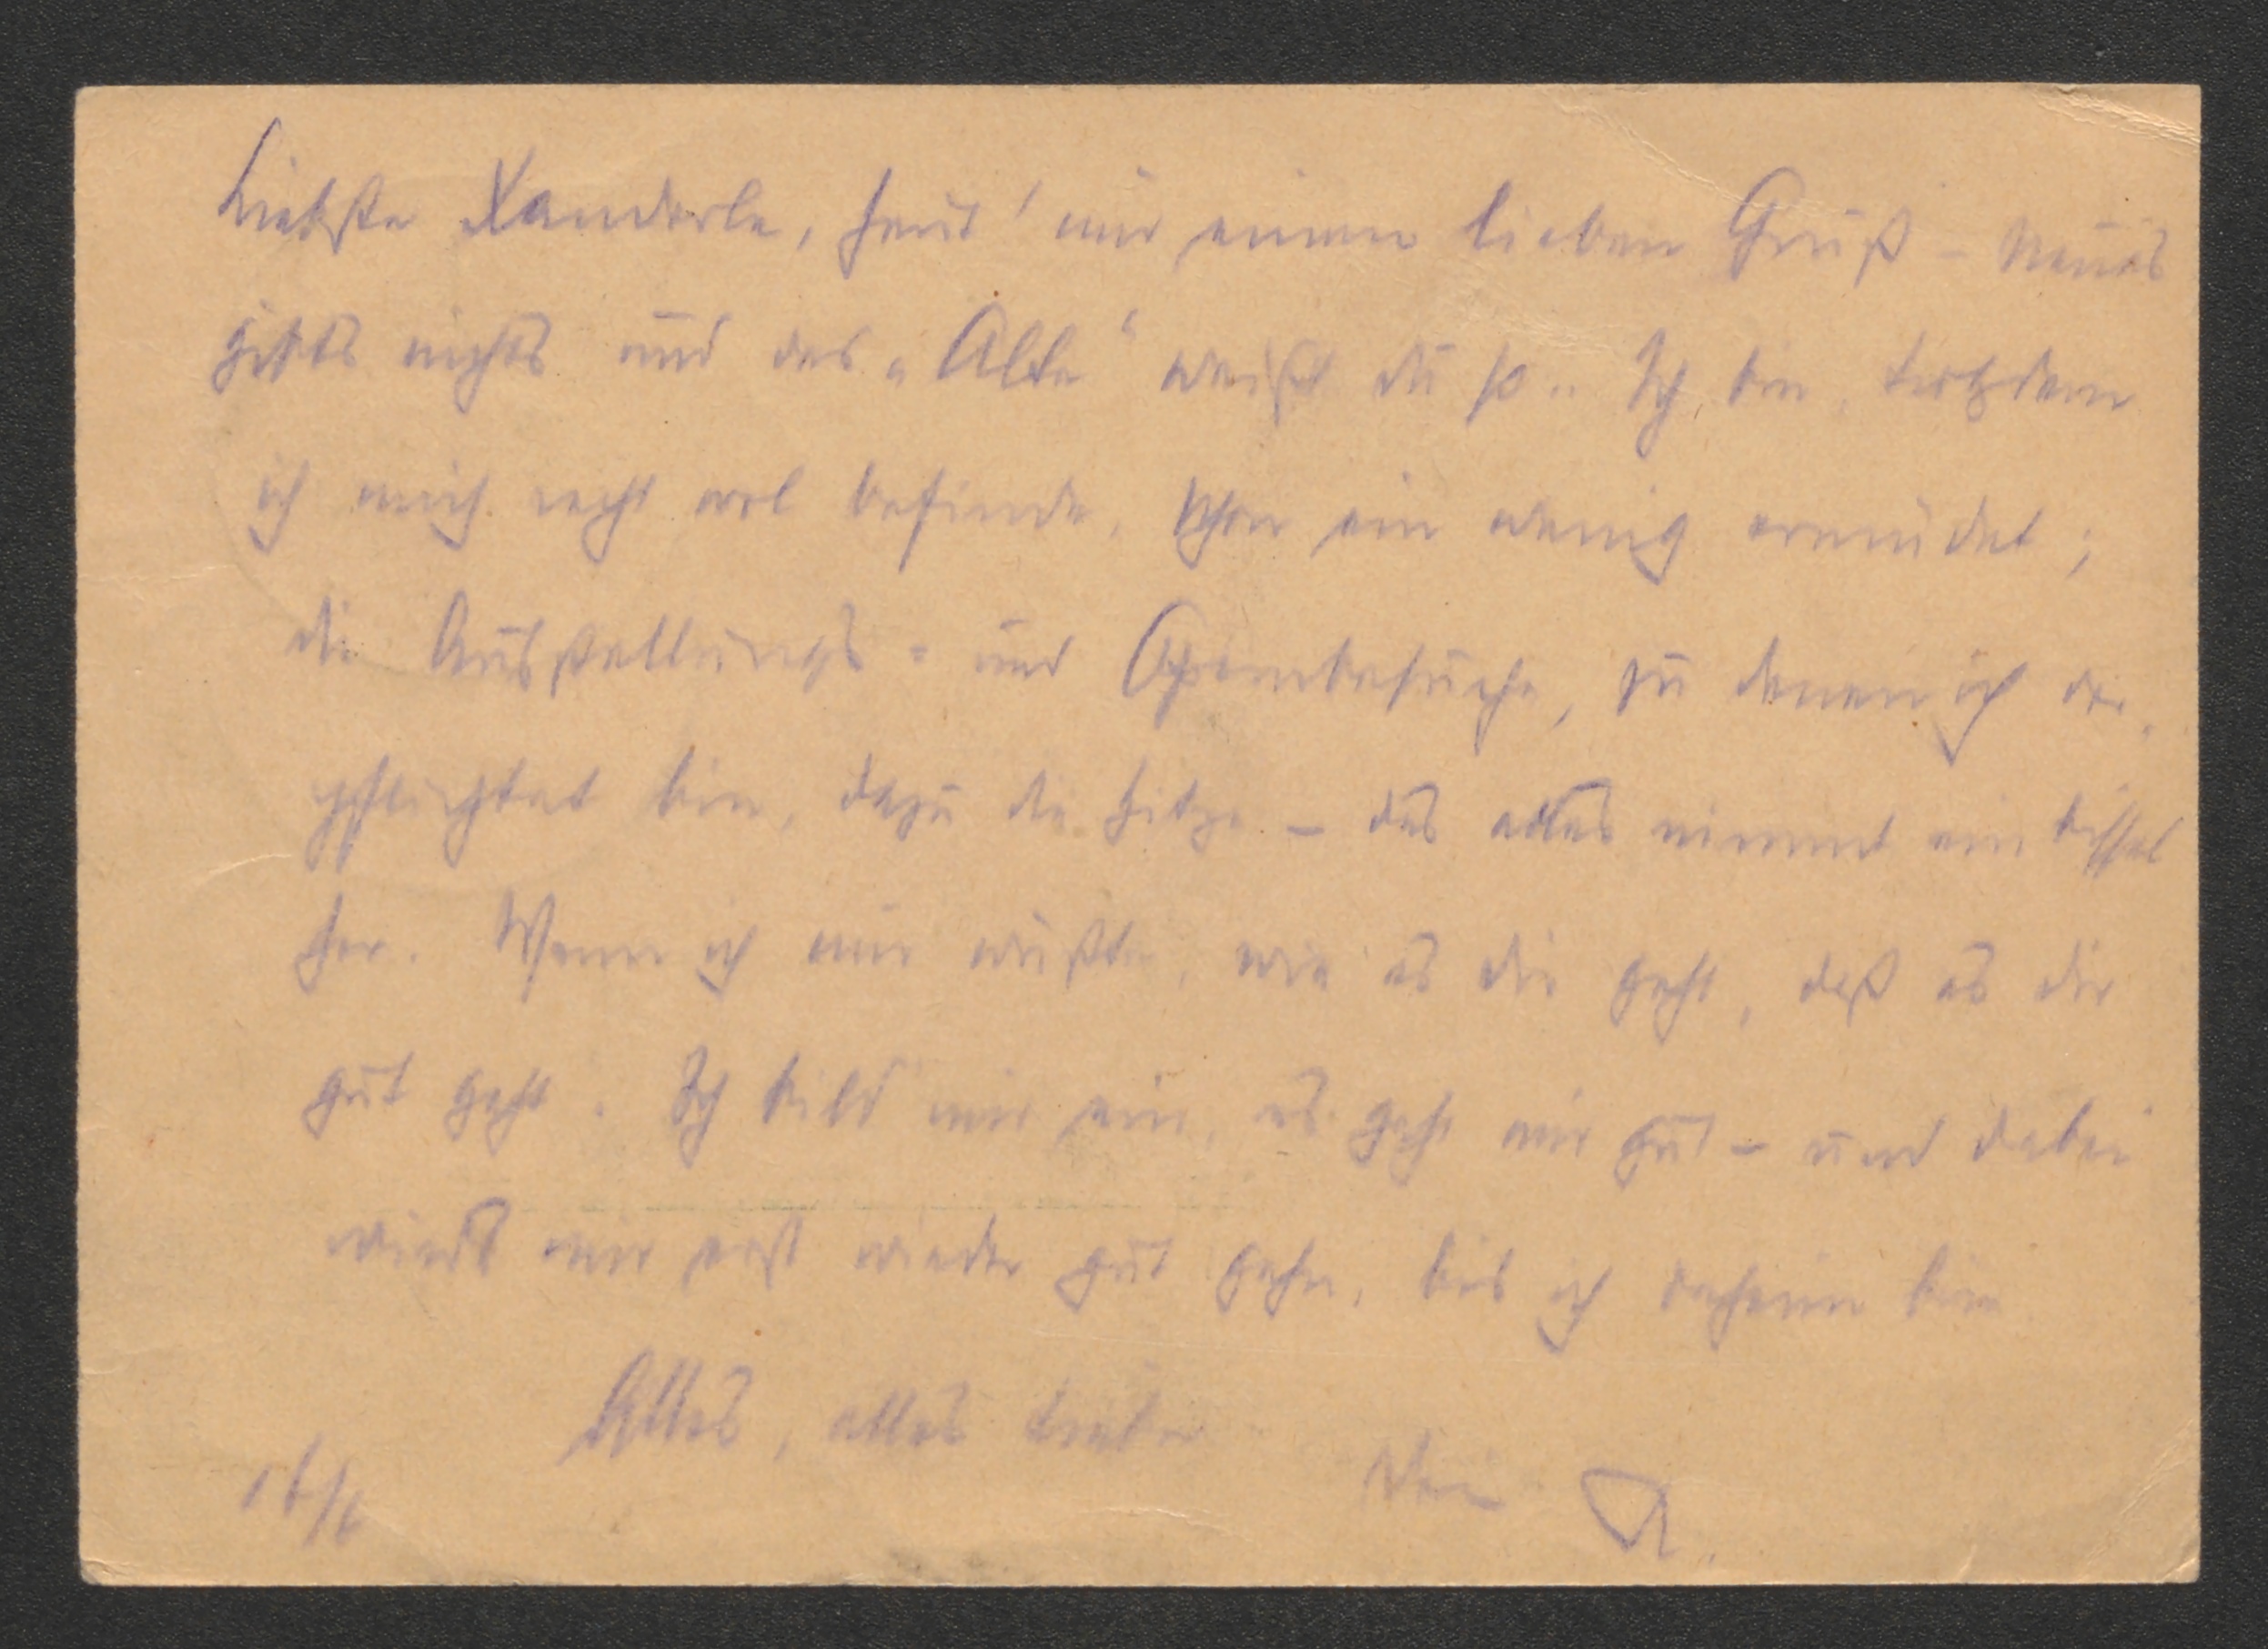 Liebste Xanderle, heut' nur einen lieben Gruß – Neues
gibts nichts und das „Alte“ weißt du so.. Ich bin, trotzdem
ich mich recht wol befinde, schon ein wenig ermüdet;
die Ausstellungs- und Opernbesuche, zu denen ich ver-
pflichtet bin, dazu die Hitze – das alles nimmt ein bissel
her. Wenn ich nur wüßte, wie es dir geht, daß es dir
gut geht. Ich bild mir ein, es geht mir gut – und dabei
wirds mir erst wieder gut gehn, bis ich daheim bin
Alles, alles Liebe
Dein R.
16/6